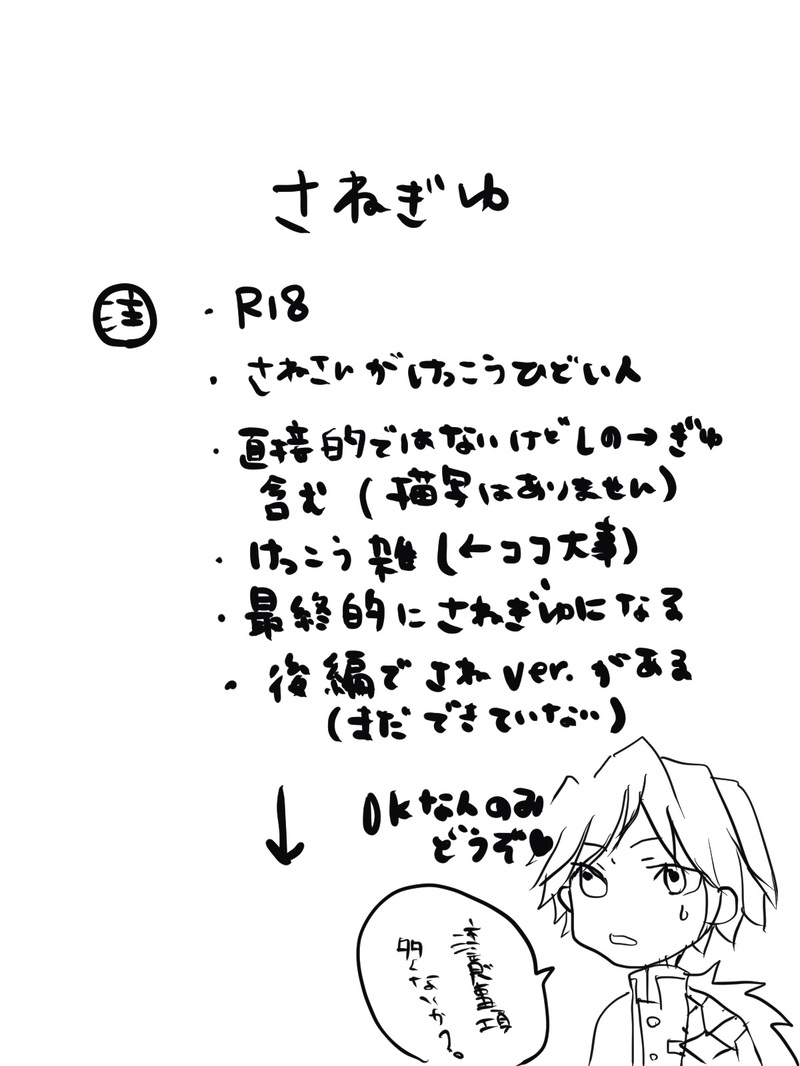 さねぎゆ
注
・R18
・さねさんがけっこうひどい人
・直接的ではないけどしの→ぎゆ
含む(描写はありません)
・けっこう雑(←ココ大事)
・最終的にさねぎゆになる
・後編でさねver.がある
(まだできていない)
↓
OKなんのみ
どうぞ♥
注意事項
多くないか?。